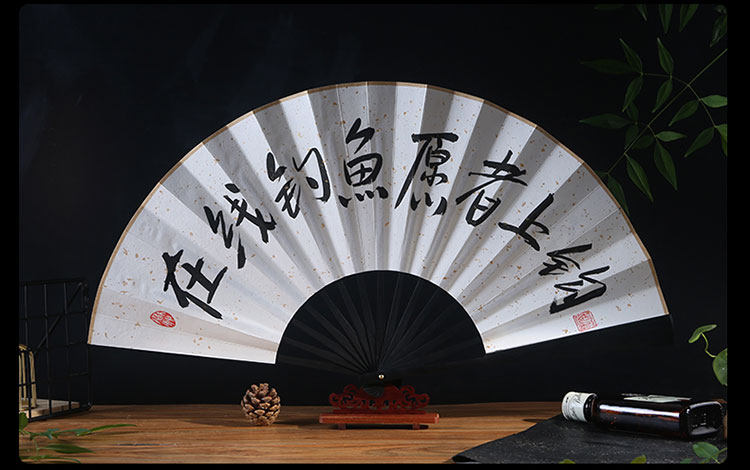 在线钓魚愿者上钩